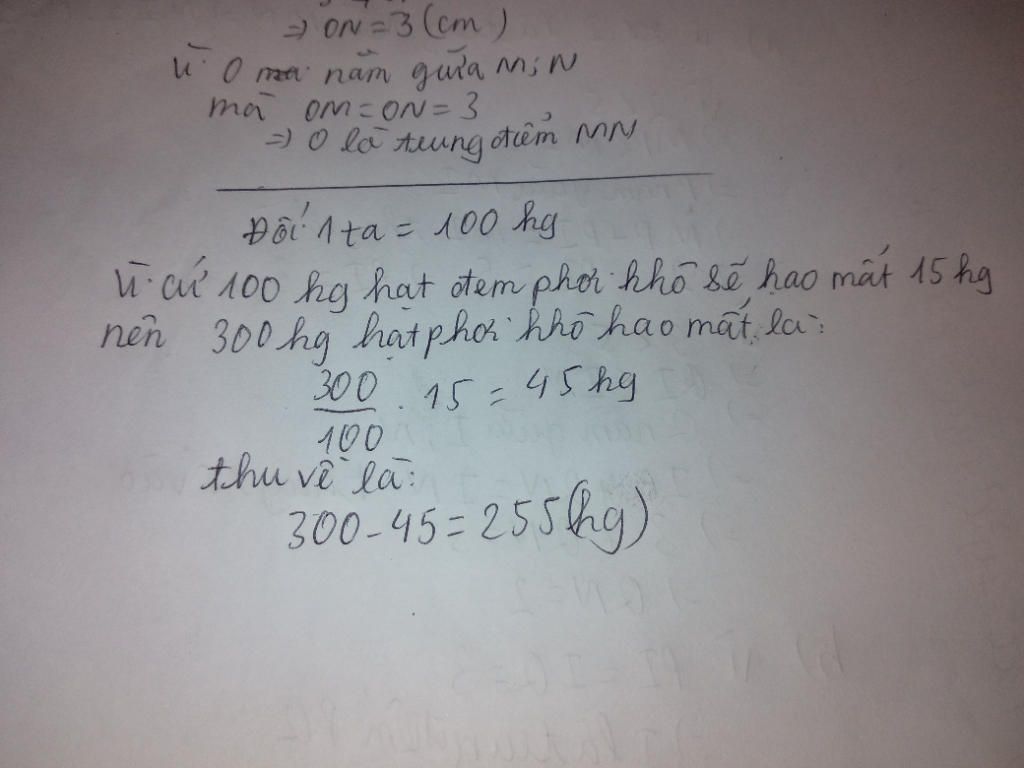 ⇒ ON = 3 (cm)
Vì O nằm giữa M; N
mà OM = ON = 3
⇒ O là trung điểm MN
Đổi 1 tạ = 100 kg
Vì cứ 100 kg hạt đem phơi khô sẽ hao mất 15 kg
nên 300 kg hạt phơi khô hao mất là:
300/100 . 15 = 45 kg
thu về là:
300 - 45 = 255 (kg)